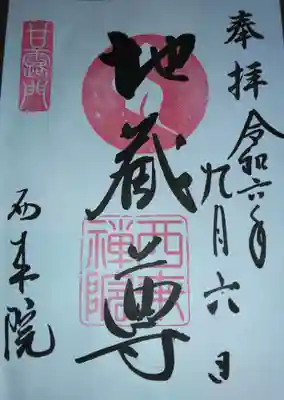 奉拝
令和六年
九月六日
地蔵尊
西来院
甘露門
西来禅院